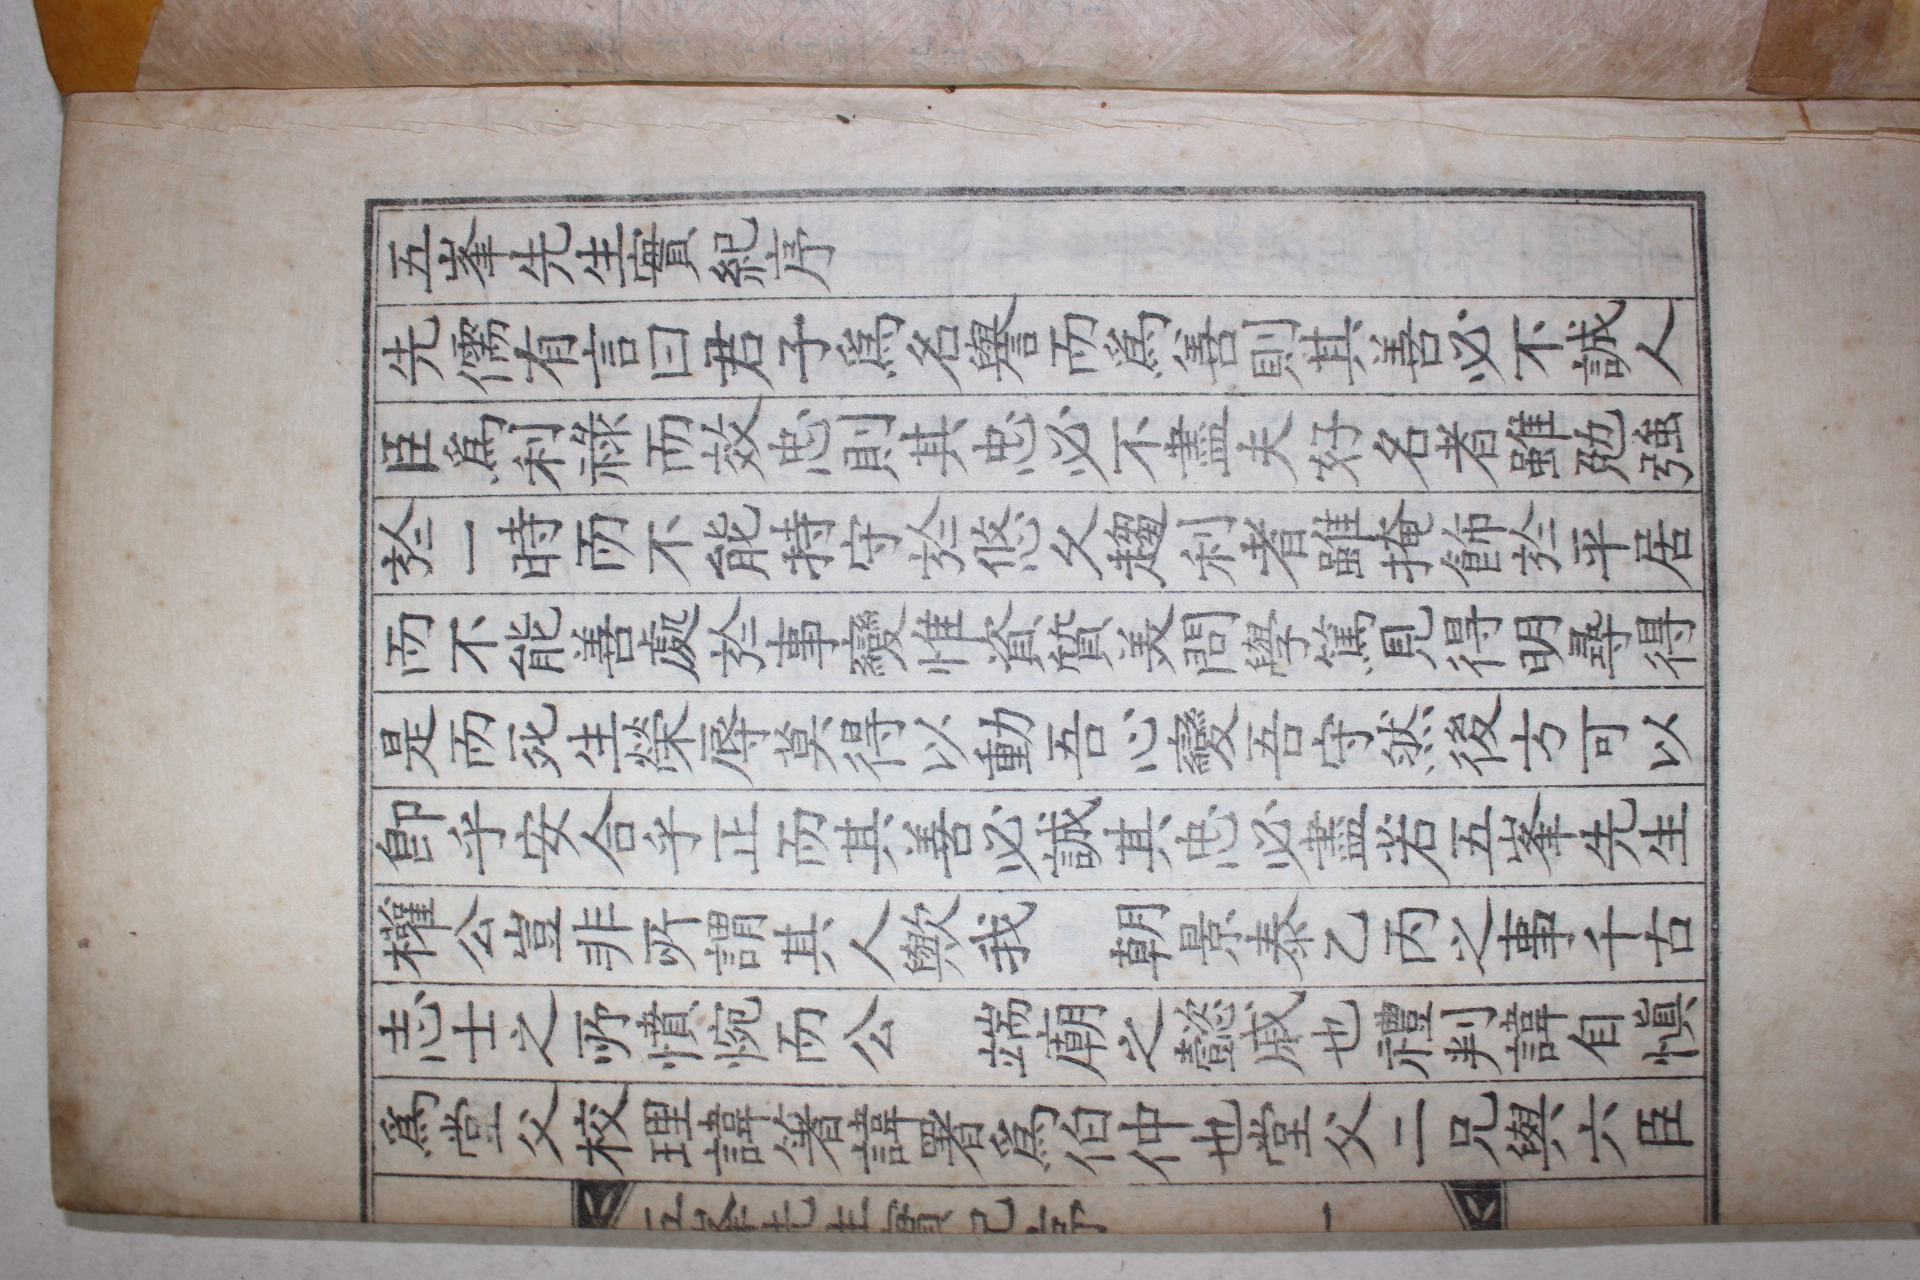 五峯先生實紀序
先儒有言曰君子爲名譽而爲善則其善必不誠人
臣爲利祿而效忠則其忠必不盡夫好名者雖勉強
於一時而不能持守於悠久趨利者雖掩飾於平居
而不能善處於事變惟資質美問學篤見得明尋得
是而死生榮辱莫得以動吾心變吾守然後方可以
卽乎安合乎正而其善必誠其忠必盡若五峯先生
權公豈非所謂其人歟我 朝景泰乙丙之事千古
志士之所憤惋而公 端廟之懿戚也禮判諱自愼
爲堂父校理諱箸諱署爲伯仲也堂父二兄與六臣
五峯先生實紀序
一